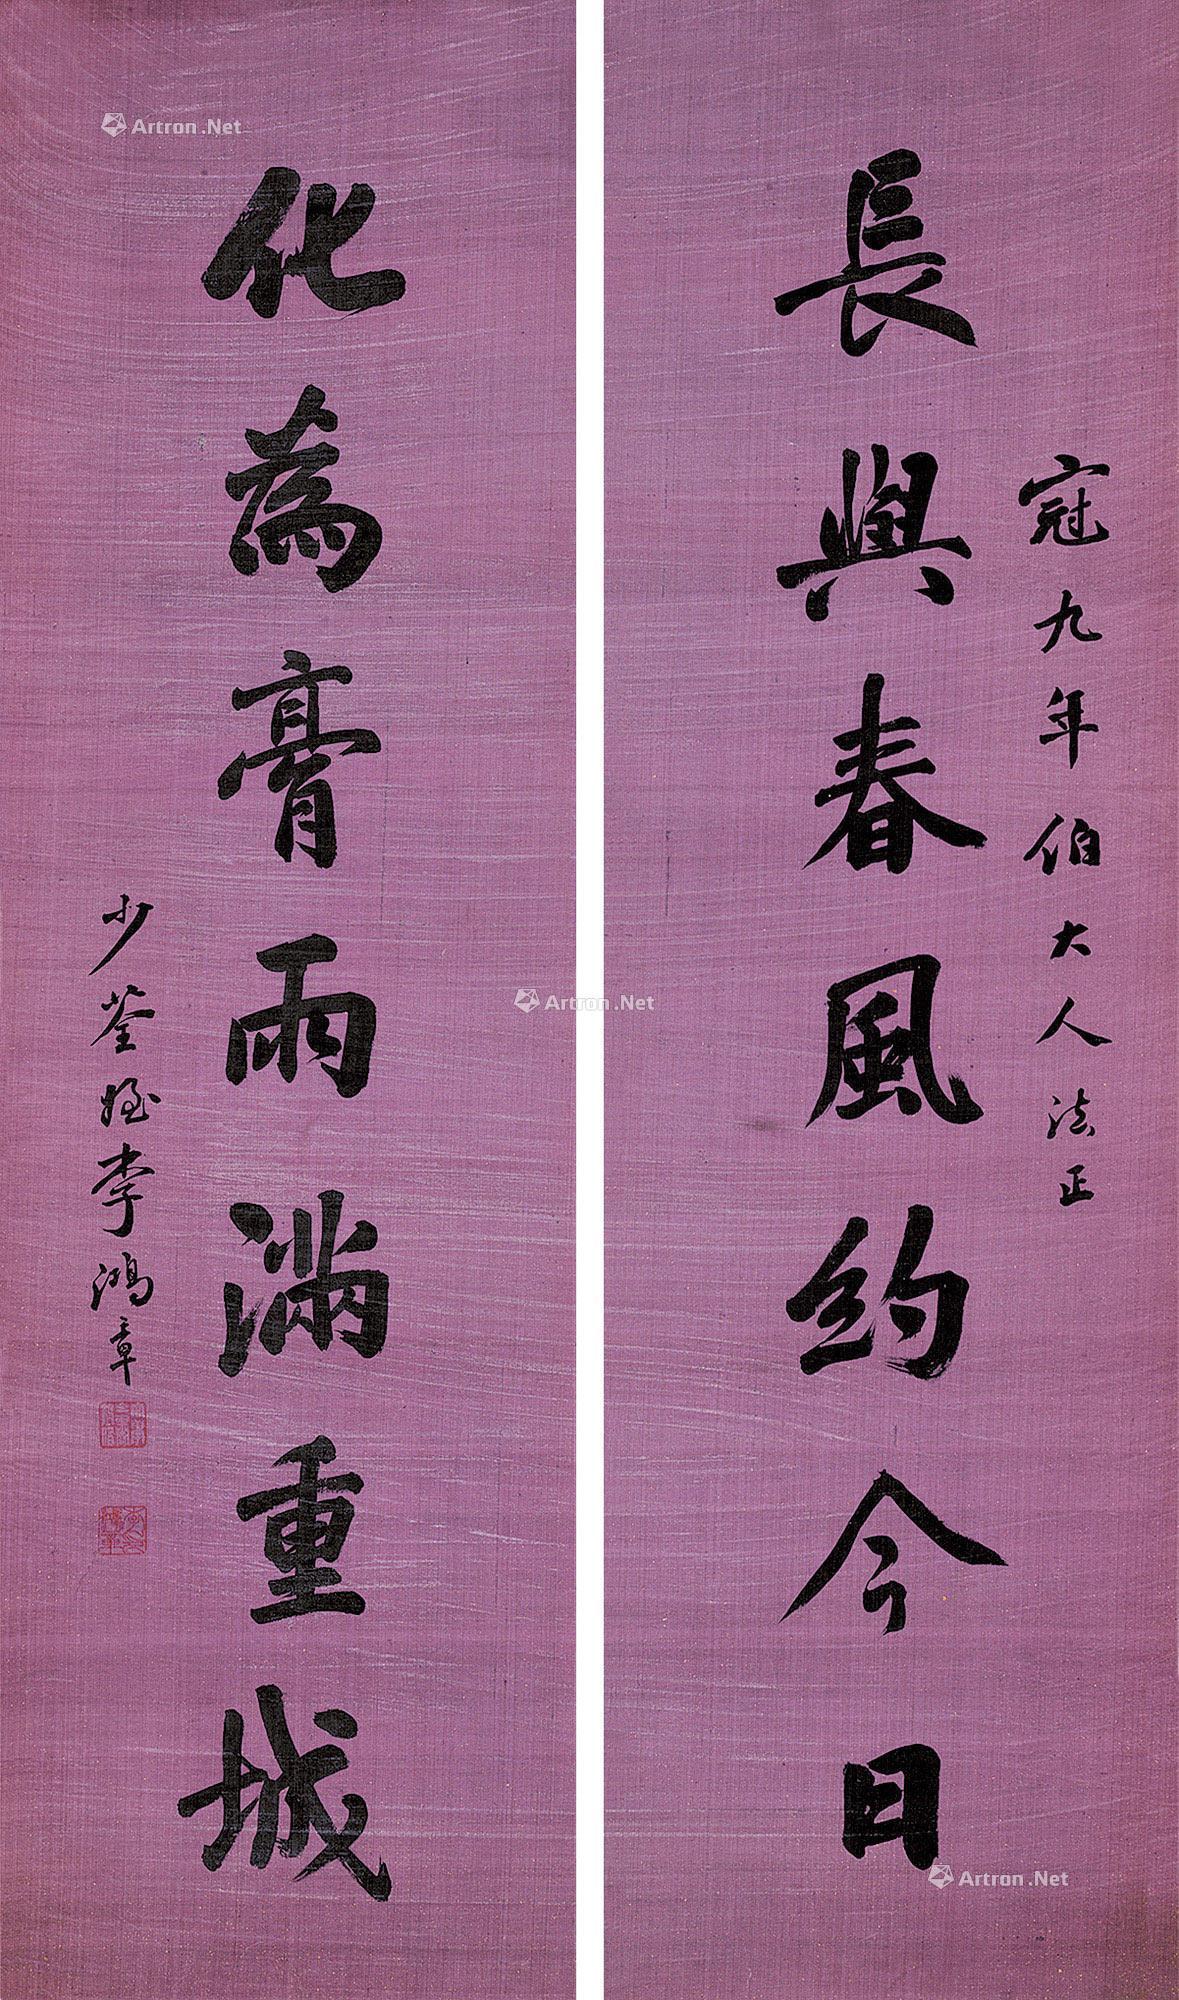 冠九年伯大人法正
長與春風約今日
化為膏雨滿重城
少荃姪李鴻章
Artron.Net
Artron.Net
Artron.Net